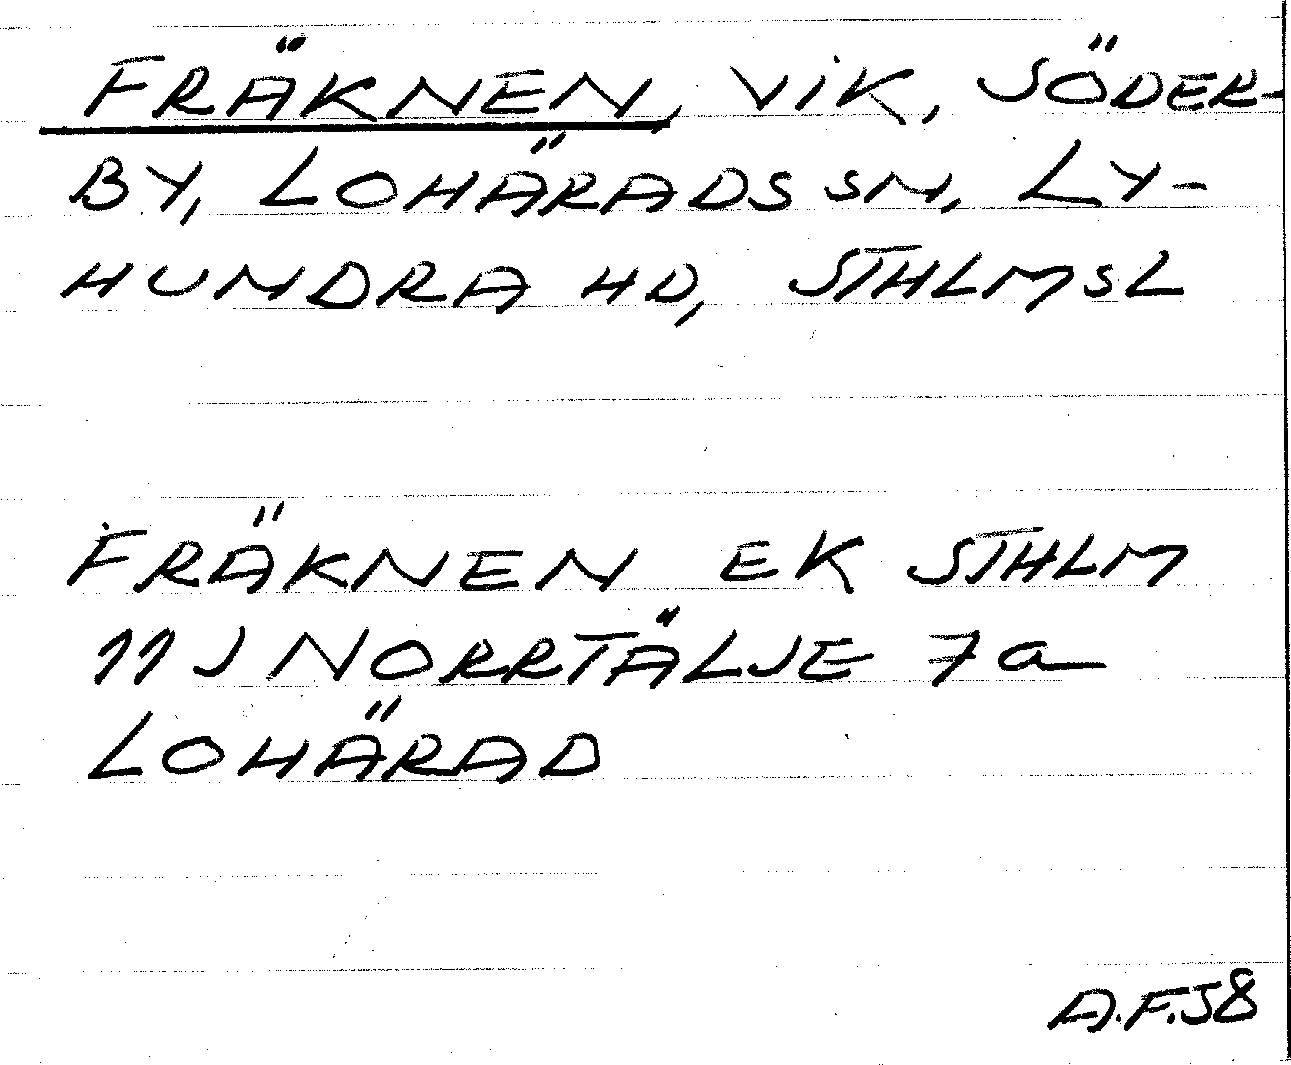 FRÄKNEN, VIK, SÖDER-
BY, LOHÄRADS SN, LY-
HUNDRA HD, STHLMSL
FRÄKNEN EK STHLM
11J NORRTÄLJE 7a
LOHÄRAD
A.F.58